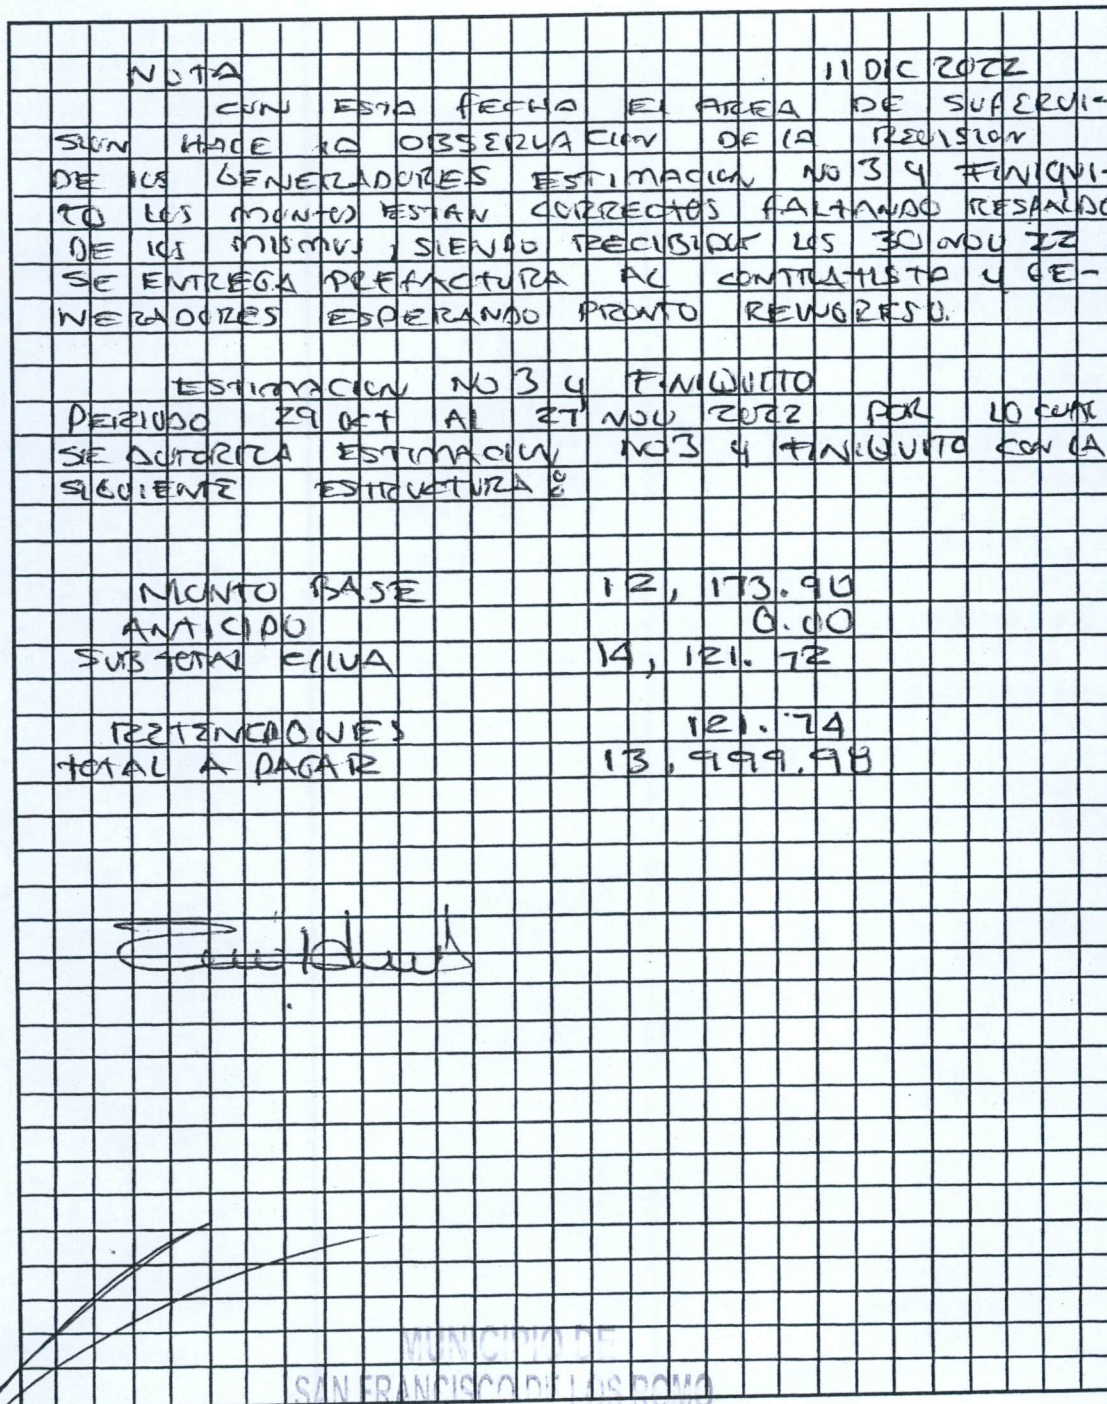 NOTA 11 DIC 2022
CON ESTA FECHA EL AREA DE SUPERVI-
SION HACE LA OBSERVACION DE LA REVISION
DE LOS GENERADORES ESTIMACION NO 3 Y FINIQUI-
TO LOS MONTOS ESTAN CORRECTOS FALTANDO RESPALDO
DE LOS MISMOS, SIENDO RECIBIDOS LOS 30 NOV 22
SE ENTREGA PREFACTURA AL CONTRATISTA Y GE-
NERADORES ESPERANDO PRONTO REINGRESO.
ESTIMACION NO 3 Y FINIQUITO
PERIODO 29 OCT AL 27 NOV 2022 POR LO CUAL
SE AUTORIZA ESTIMACION NO 3 Y FINIQUITO CON LA
SIGUIENTE ESTRUCTURA:
MONTO BASE 12,173.90
ANTICIPO 0.00
SUBTOTAL C/IVA 14,121.72
RETENCIONES 121.74
TOTAL A PAGAR 13,999.98
MUNICIPIO DE
SAN FRANCISCO DE LOS ROMO